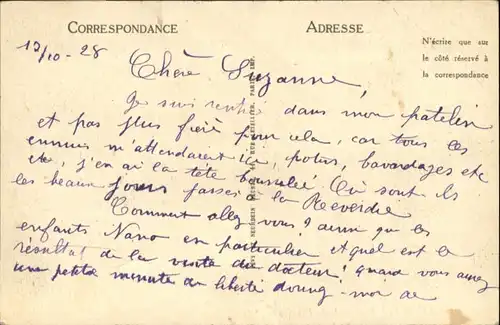 CORRESPONDANCE
ADRESSE
N'écrire que sur
le côté réservé à
la correspondance
12/10 - 28
Chère Suzanne,
Je suis rentré dans mon patelin
et pas plus fière pour cela, car tous les
ennuis m'attendaient ici, potins, bavardages etc
etc, j'en ai la tête Où sont ils
les beaux jours passés à la Reverdie
Comment allez vous ? ainsi que les
enfants Nano en particulier et quel est le
résultat de la visite du docteur ! quand vous aurez
une petite minute de liberté donnez-moi de